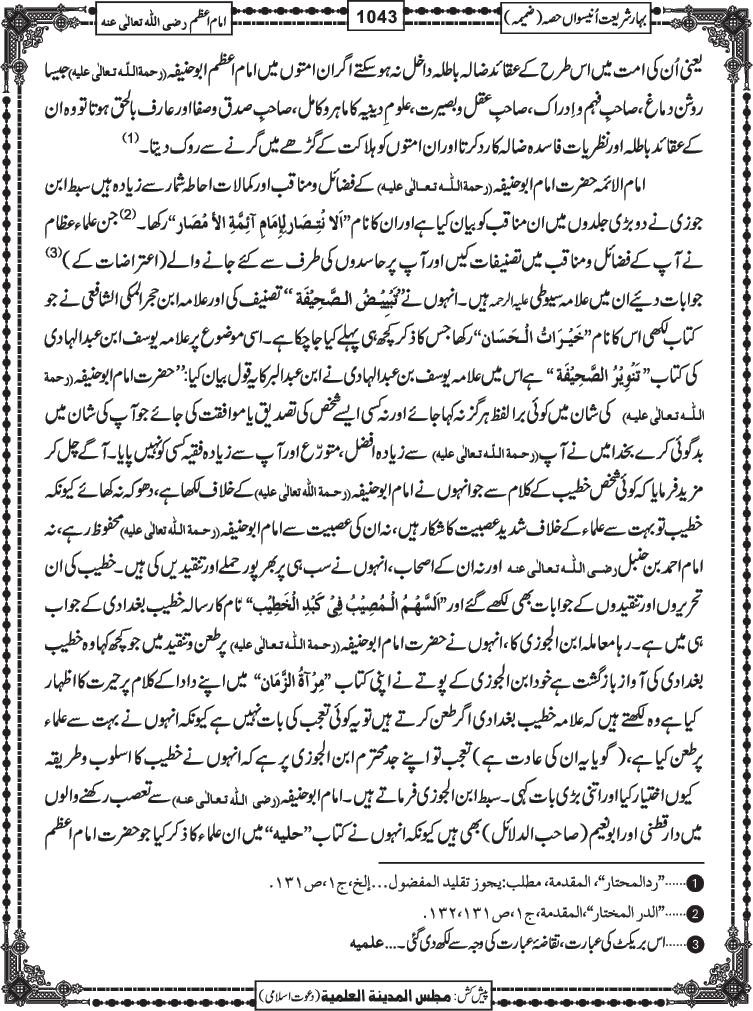 بہارِ شریعت اُنیسواں حصہ (ضمیمہ)
1043
امام اعظم رضی اللہ تعالٰی عنہ
یعنی اُن کی امت میں اس طرح کے عقائد ضالہ باطلہ داخل نہ ہو سکتے اگر ان امتوں میں امام اعظم ابو حنیفہ (رحمة اللہ تعالٰی علیہ) جیسا
روشن دماغ، صاحبِ فہم و اِدراک، صاحبِ عقل و بصیرت، علومِ دینیہ کا ماہر و کامل، صاحبِ صدق و صفا اور عارف بالحق ہوتا تو وہ ان
کے عقائد باطلہ اور نظریات فاسدہ ضالہ کا رد کرتا اور ان امتوں کو ہلاکت کے گڑھے میں گرنے سے روک دیتا۔(1)
امام الائمہ حضرت امام ابو حنیفہ (رحمة اللہ تعالٰی علیہ) کے فضائل و مناقب اور کمالات احاطہ شمار سے زیادہ ہیں سبط ابن
جوزی نے دو بڑی جلدوں میں ان مناقب کو بیان کیا ہے اور ان کا نام ”اَلْاِنْتِصَار لِإِمَامِ اَئِمَّةِ الْأَمْصَار“ رکھا۔(2) جن علماء عظام
نے آپ کے فضائل و مناقب میں تصنیفات کیں اور آپ پر حاسدوں کی طرف سے کئے جانے والے (اعتراضات کے)(3)
جوابات دیئے ان میں علامہ سیوطی علیہ الرحمہ ہیں۔ انہوں نے ”تَبْیِیْضُ الصَّحِیْفَة“ تصنیف کی اور علامہ ابن حجر المکی الشافعی نے جو
کتاب لکھی اس کا نام ”خَیْرَاتُ الْحَسَان“ رکھا جس کا ذکر کچھ ہی پہلے کیا جا چکا ہے۔ اسی موضوع پر علامہ یوسف ابن عبد الہادی
کی کتاب ”تَنْوِیْرُ الصَّحِیْفَة“ ہے اس میں علامہ یوسف بن عبد الہادی نے ابن عبد البر کا یہ قول بیان کیا: ”حضرت امام ابو حنیفہ (رحمة
اللہ تعالٰی علیہ) کی شان میں کوئی برا لفظ ہرگز نہ کہا جائے اور نہ کسی ایسے شخص کی تصدیق یا موافقت کی جائے جو آپ کی شان میں
بدگوئی کرے بخدا میں نے آپ (رحمة اللہ تعالٰی علیہ) سے زیادہ افضل، متورّع اور آپ سے زیادہ فقیہ کسی کو نہیں پایا۔ آگے چل کر
مزید فرمایا کہ کوئی شخص خطیب کے کلام سے جو انہوں نے امام ابو حنیفہ (رحمة اللہ تعالٰی علیہ) کے خلاف لکھا ہے، دھوکہ نہ کھائے کیونکہ
خطیب تو بہت سے علماء کے خلاف شدید عصبیت کا شکار ہیں، نہ ان کی عصبیت سے امام ابو حنیفہ (رحمة اللہ تعالٰی علیہ) محفوظ رہے، نہ
امام احمد بن حنبل رضی اللہ تعالٰی عنہ اور نہ ان کے اصحاب، انہوں نے سب ہی پر بھر پور حملے اور تنقیدیں کی ہیں۔ خطیب کی ان
تحریروں اور تنقیدوں کے جوابات بھی لکھے گئے اور ”اَلسَّهْمُ الْمُصِیْبُ فِیْ کَبِدِ الْخَطِیْب“ نام کا رسالہ خطیب بغدادی کے جواب
ہی میں ہے۔ رہا معاملہ ابن الجوزی کا، انہوں نے حضرت امام ابو حنیفہ (رحمة اللہ تعالٰی علیہ) پر طعن و تنقید میں جو کچھ کہا وہ خطیب
بغدادی کی آواز بازگشت ہے خود ابن الجوزی کے پوتے نے اپنی کتاب ”مِرْآةُ الزَّمَان“ میں اپنے دادا کے کلام پر حیرت کا اظہار
کیا ہے وہ لکھتے ہیں کہ علامہ خطیب بغدادی اگر طعن کرتے ہیں تو یہ کوئی تعجب کی بات نہیں ہے کیونکہ انہوں نے بہت سے علماء
پر طعن کیا ہے، (گویا یہ ان کی عادت ہے) تعجب تو اپنے جد محترم ابن الجوزی پر ہے کہ انہوں نے خطیب کا اسلوب و طریقہ
کیوں اختیار کیا اور اتنی بڑی بات کہی۔ سبط ابن الجوزی فرماتے ہیں۔ امام ابو حنیفہ (رضی اللہ تعالٰی عنہ) سے تعصب رکھنے والوں
میں دارقطنی اور ابو نعیم (صاحب الدلائل) بھی ہیں کیونکہ انہوں نے کتاب ”حلیه“ میں ان علماء کا ذکر کیا جو حضرت امام اعظم
1 ......”ردالمحتار“، المقدمة، مطلب: یجوز تقلید المفضول...إلخ، ج۱، ص۱۳۱.
2 ......”الدر المختار“، المقدمة، ج۱، ص۱۳۱، ۱۳۲.
3 ......اس بریکٹ کی عبارت، تقاضۂ عبارت کی وجہ سے لکھ دی گئی۔... علمیه
پیش کش: مجلس المدینة العلمیة (دعوت اسلامی)